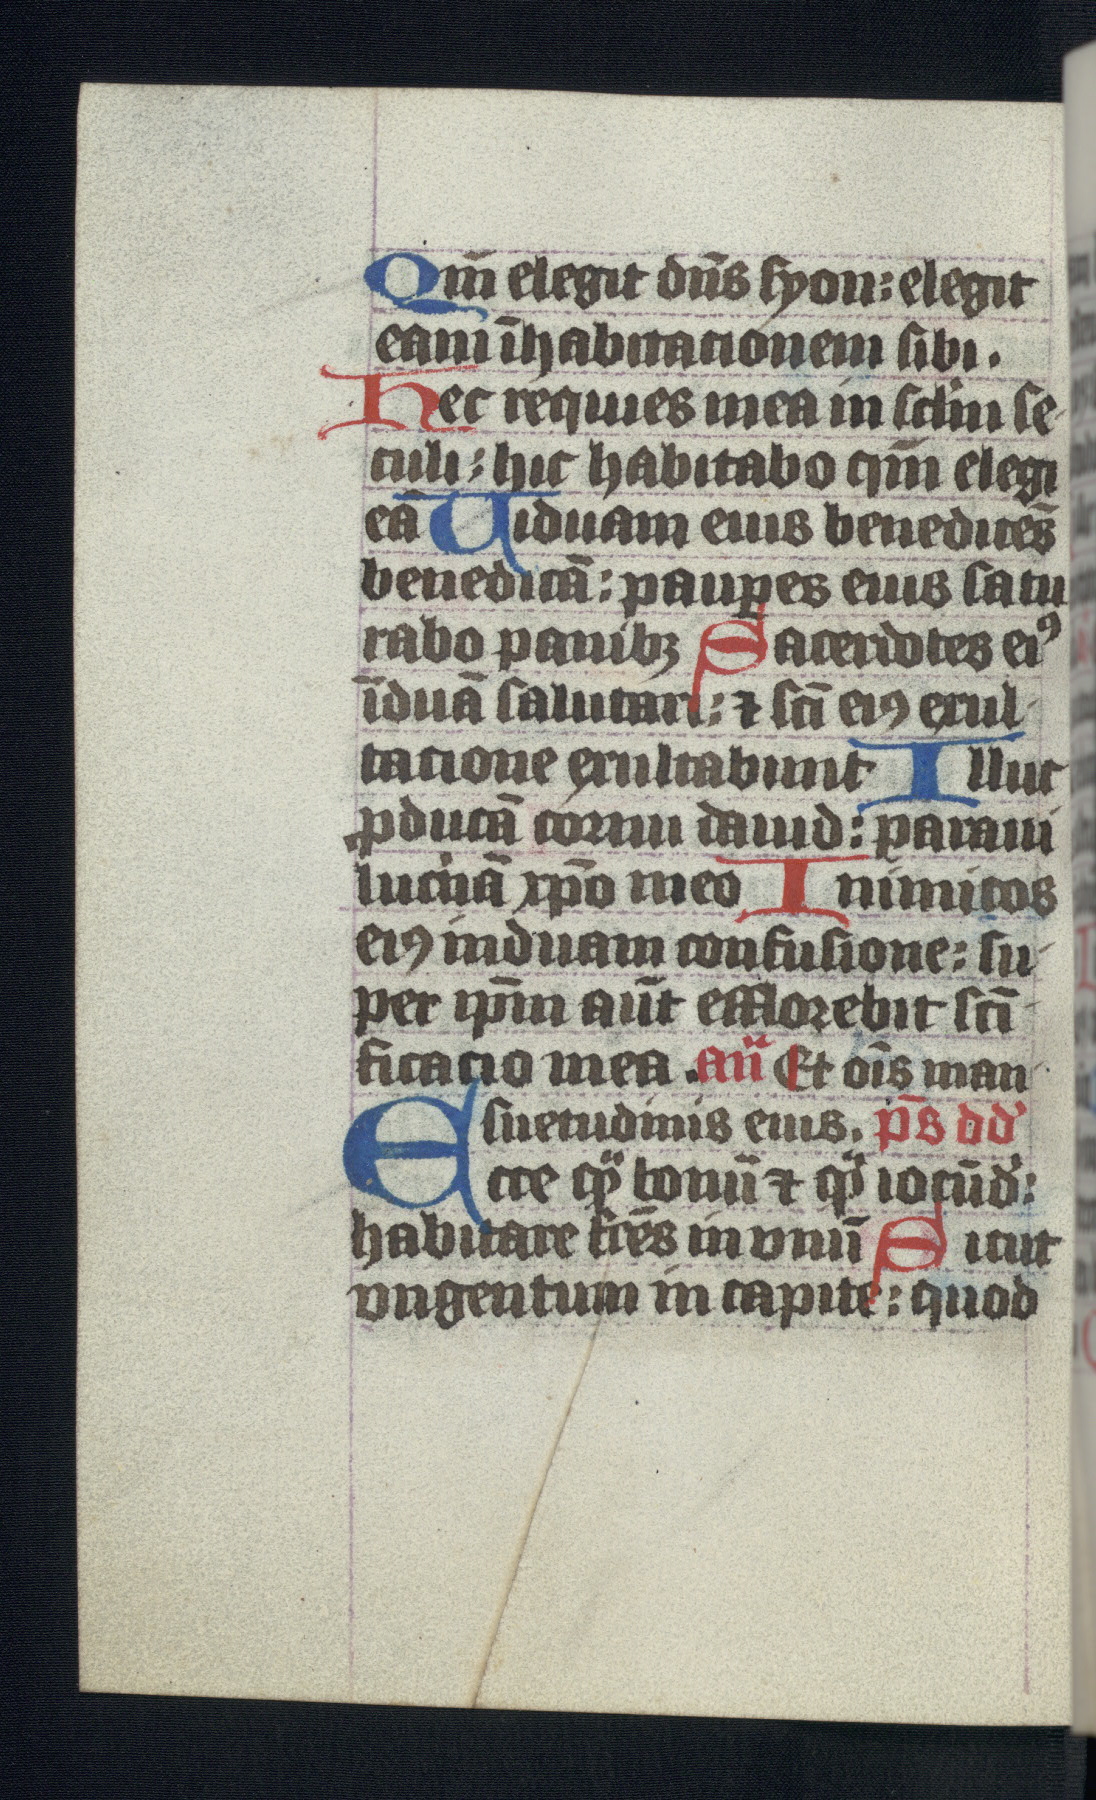 Qm̄ elegit dn̄s syon: elegit
eam īhabitacionem sibi.
Hec requies mea in sc̄lm se
culi: hic habitabo qm̄ elegi
eā Uiduam eius benedicēs
benedicā: paup̲es eius satu
rabo panibꝫ Sacerdotes eiꝰ
īduā salutari: ⁊ sc̄i eiꝰ exul
tacione exultabunt Illuc
ꝓducā cornu dauid: paraui
lucˀnā xp̄o meo Inimicos
eiꝰ induam confusione: su
per ip̄m aūt efflorebit sc̄i
ficacio mea. añ Et oīs man
suetudinis eius. p̄s dd'
Ecce qͣ bonū ⁊ qͣ iocūd':
habitare fr̄es in vnū Sicut
vngentum in capite: quod